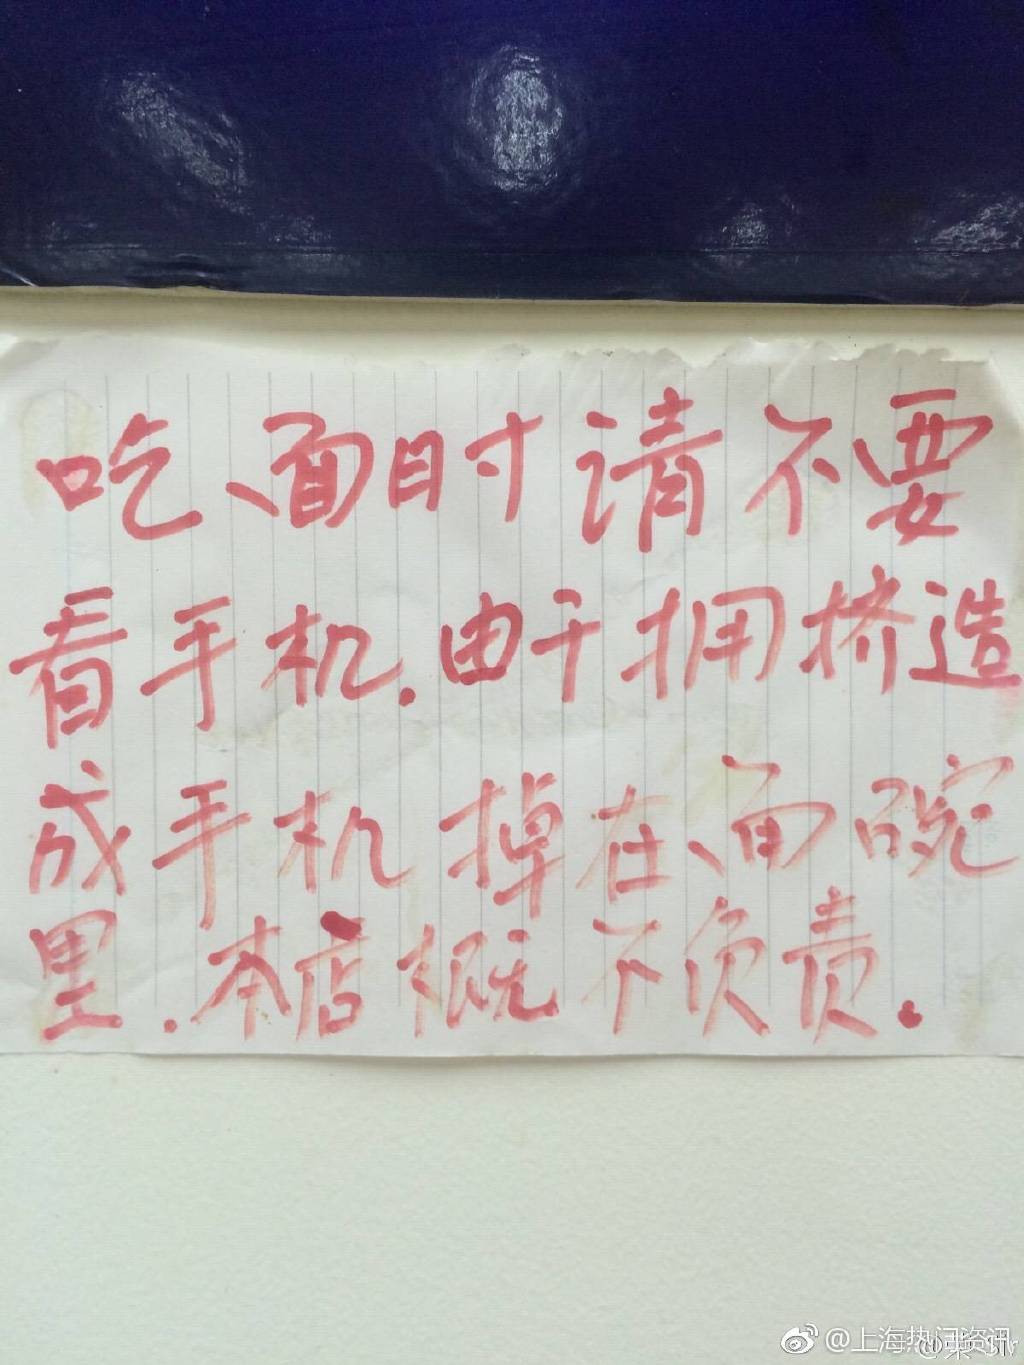 吃面时请不要
看手机.由于拥挤造
成手机掉在面碗
里.本店概不负责.
@上海热门资讯